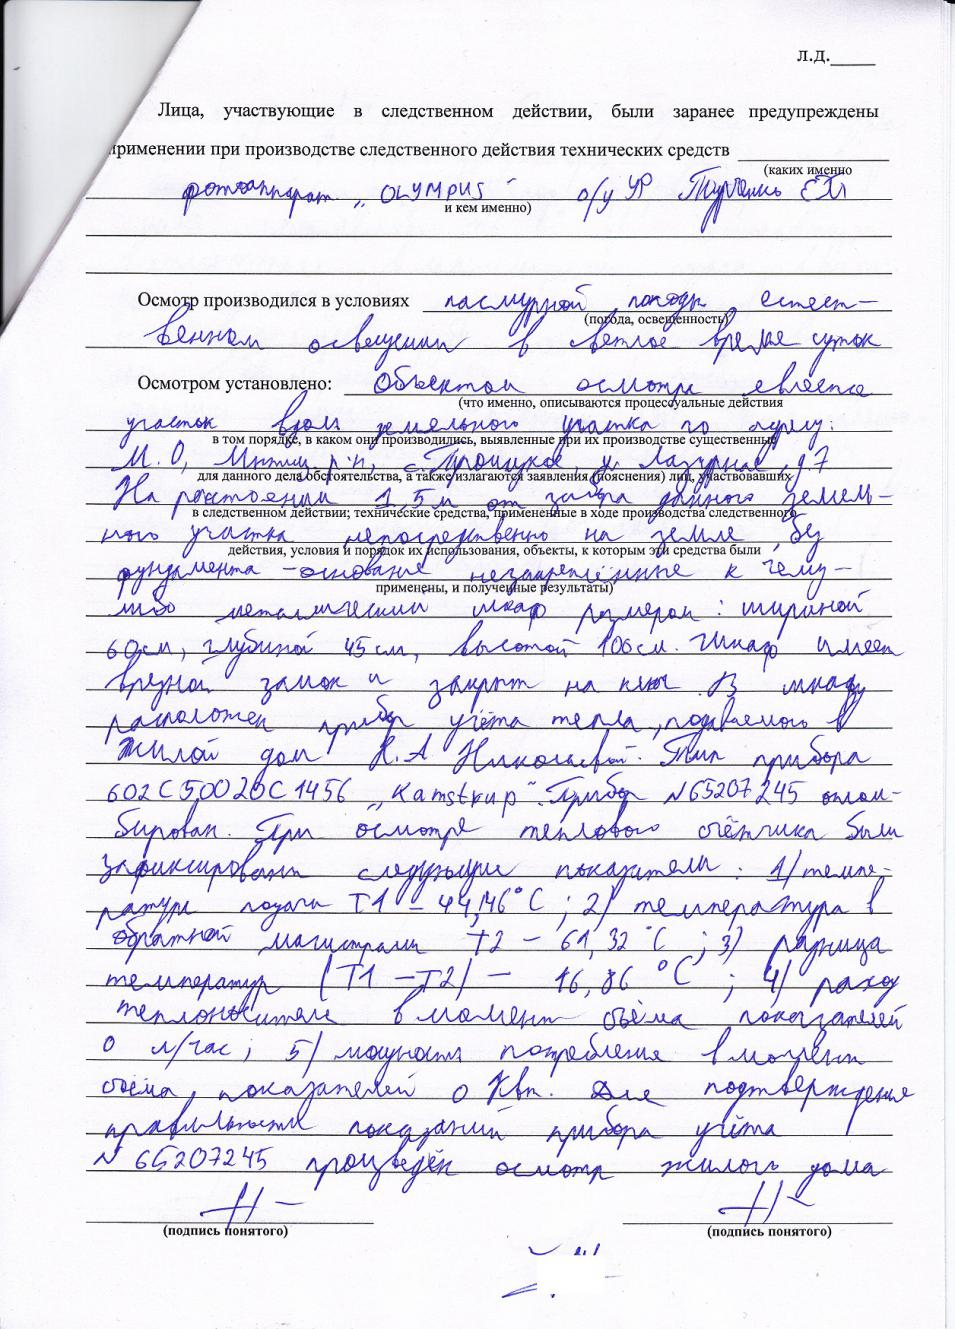 л.д.____
Лица, участвующие в следственном действии, были заранее предупреждены
применении при производстве следственного действия технических средств
(каких именно
фотоаппарат „OLYMPUS" о/у УР
и кем именно)
Осмотр производился в условиях пасмурной погоды естест–
(погода, освещенность)
венном освещении в светлое время суток
Осмотром установлено: Объектом осмотра является
(что именно, описываются процессуальные действия
участок земельного участка по адресу:
в том порядке, в каком они производились, выявленные при их производстве существенные
М.О, р-н, с. Троицкое, ул. Лазурная, д 7
для данного дела обстоятельства, а также излагаются заявления (пояснения) лиц, участвовавших
На расстоянии 1,5 м от забора данного земель–
в следственном действии; технические средства, примененные в ходе производства следственного
ного участка непосредственно на земле, без
действия, условия и порядок их использования, объекты, к которым эти средства были
фундамента – основание незакреплённые к чему–
применены, и полученные результаты)
либо металлический шкаф размером: шириной
60см, глубиной 45 см, высотой 106 см. Шкаф имеет
врезной замок и закрыт на ключ. В шкафу
расположен прибор учёта тепла, подаваемого в
жилой дом Н.А Николаевой. Тип прибора
602C50020C1456 „Kamstrup". Прибор №65207245 оплом–
бирован. При осмотре теплового счётчика были
зафиксированы следующие показатели: 1) темпе–
ратура подачи Т1 – 44,46°С; 2) температура в
обратной магистрали Т2 – 61,32°С; 3) разница
температур (Т1 – Т2) – 16,86 °С; 4) расход
теплоносителя в момент съёма показателей
0 л/час; 5) мощность потребления в момент
съёма показателей 0 Квт. Для подтверждения
правильности показаний прибора учёта
№ 65207245 произведён осмотр жилого дома
(подпись понятого) (подпись понятого)